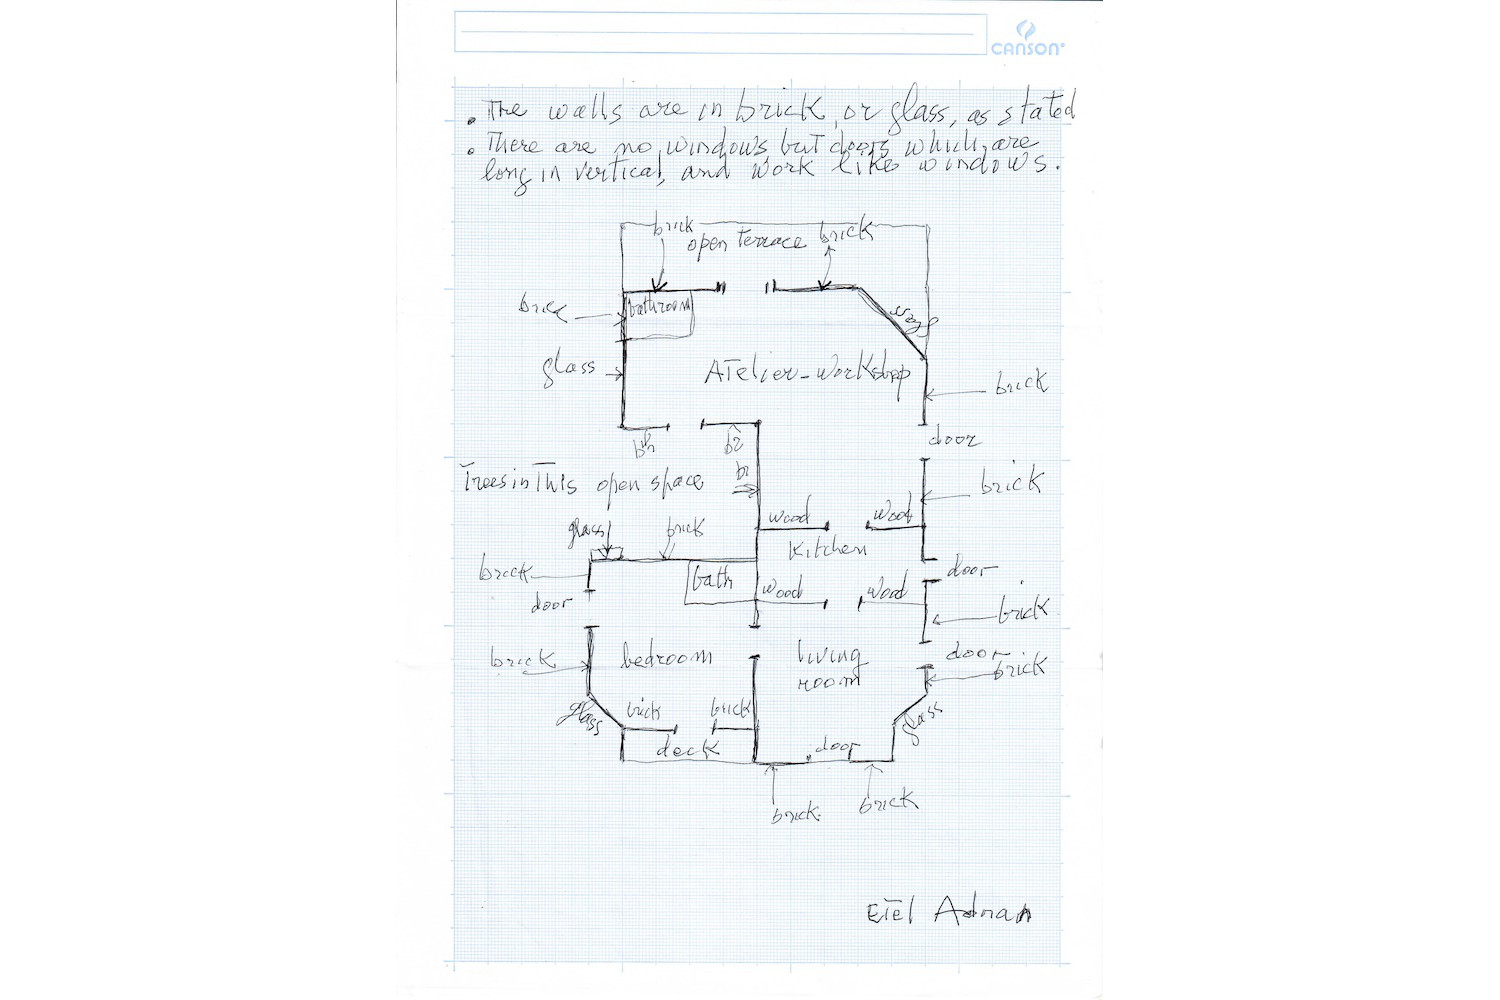 CANSON
. The walls are in brick, or glass, as stated
. There are no windows but doors which are
long in vertical, and work like windows.
brick
open terrace brick
brick
bathroom
glass
glass
Atelier-workshop
brick
door
br
br
br
Trees in This open space
brick
wood
wood
glass
brick
Kitchen
brick
bath
door
door
wood
wood
brick
brick
bedroom
living
room
door
brick
glass
brick
brick
glass
deck
door
brick
brick
Etel Adnan